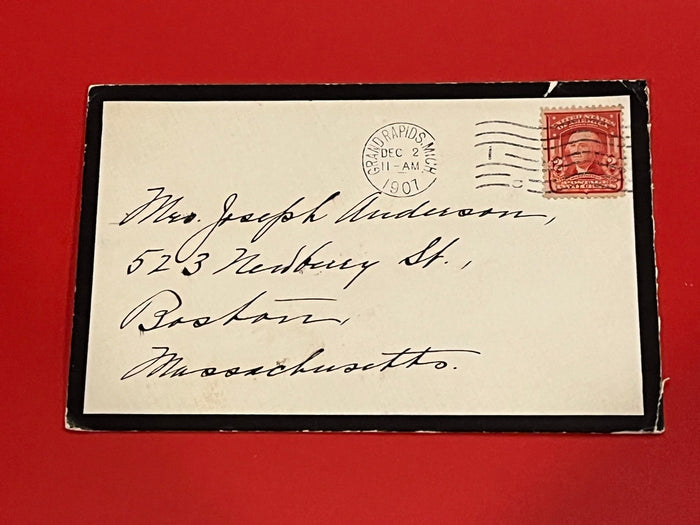 GRAND RAPIDS, MICH.
DEC 2
11-AM
1907
UNITED STATES
OF AMERICA
2 2
Mrs. Joseph Anderson,
523 Newbury St.,
Boston,
Massachusetts.